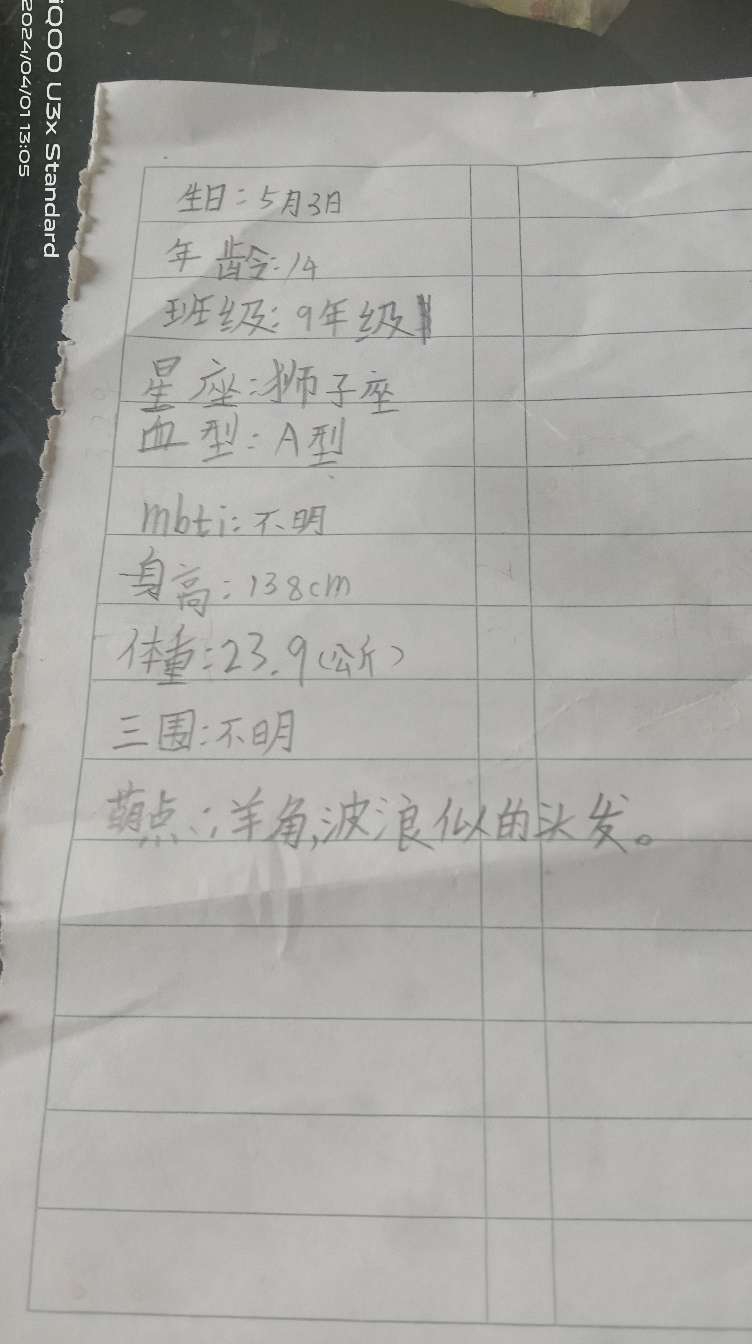 iQOO U3x Standard
2024/04/01 13:05
生日：5月3日
年龄：14
班级：9年级
星座：狮子座
血型：A型
mbti：不明
身高：138cm
体重：23.9（公斤）
三围：不明
萌点：羊角，波浪似的头发。